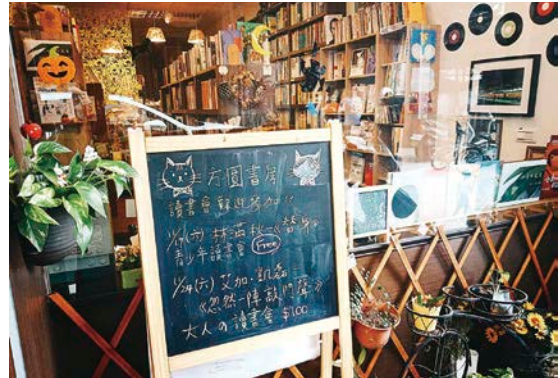 方圓書房
讀書會歡迎參加!!
11/17(六) 林滿秋《替身》
青少年讀書會 Free
11/24(六) 艾加·凱磊
《忽然一陣敲門聲》
大人の讀書會 $100